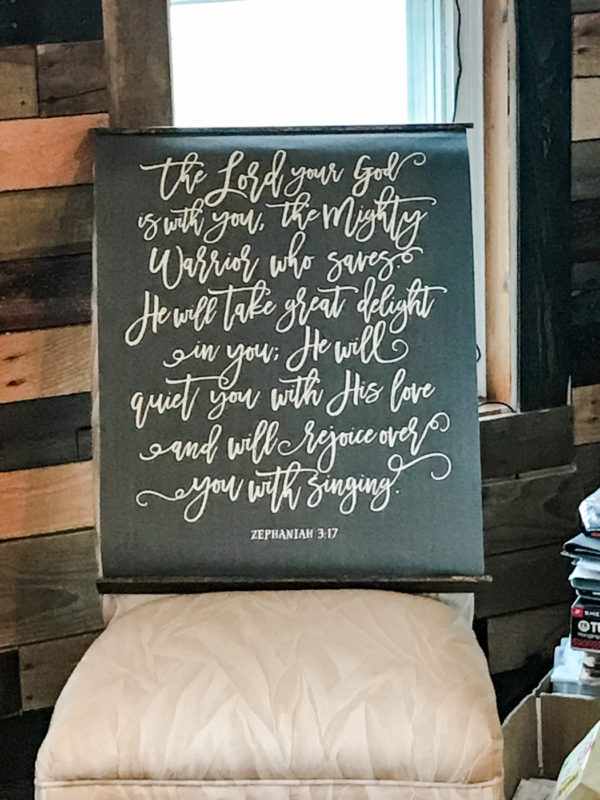 the Lord your God
is with you, the Mighty
Warrior who saves.
He will take great delight
in you; He will
quiet you with His love
and will rejoice over
you with singing.
ZEPHANIAH 3:17